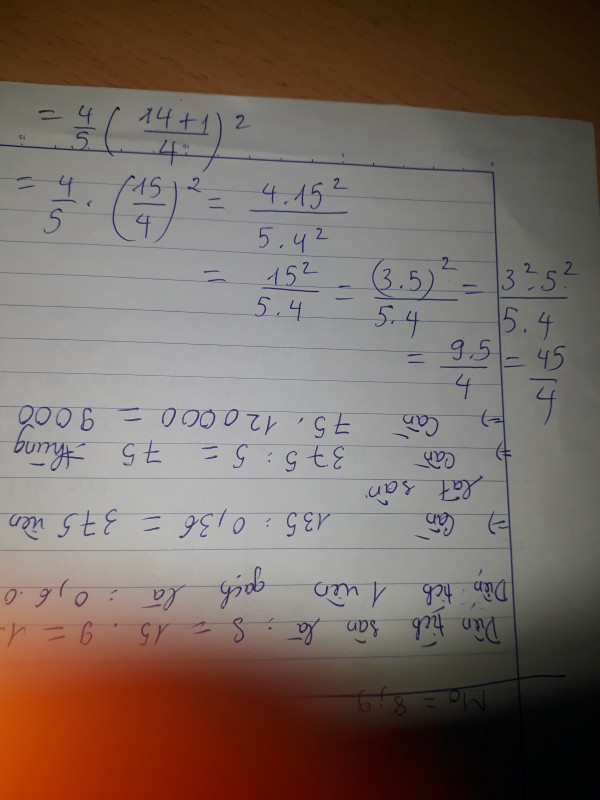 = \frac{4}{5} \left( \frac{14+1}{4} \right)^2
= \frac{4}{5} . \left( \frac{15}{4} \right)^2 = \frac{4.15^2}{5.4^2}
= \frac{15^2}{5.4} = \frac{(3.5)^2}{5.4} = \frac{3^2.5^2}{5.4}
= \frac{9.5}{4} = \frac{45}{4}
M₀ = 8,9
Diện tích sàn là : S = 15 . 9 = 1
Diện tích 1 viên gạch là : 0,6.0
=> Cần 135 : 0,36 = 375 viên
lát sàn
=> Cần 375 : 5 = 75 thùng
=> Cần 75 . 120000 = 9000